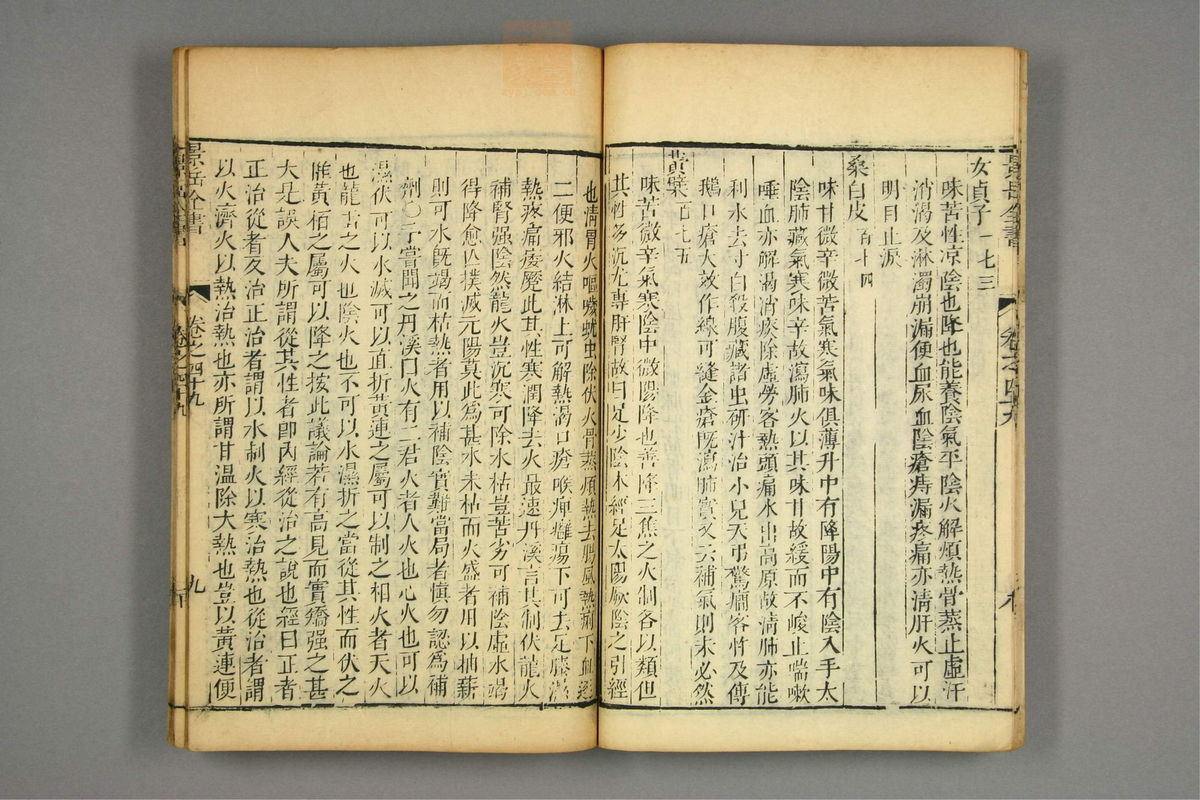 景岳全書
卷之四十九
女貞子一七三
味苦性凉陰也降也能養陰氣平陰火解煩熱骨蒸止虛汗
消渴及淋濁崩漏便血尿血陰瘡痔漏疼痛亦清肝火可以
明目止淚
桑白皮百十四
味甘微辛微苦氣寒氣味俱薄升中有降陽中有陰入手太
陰肺藏氣寒味辛故瀉肺火以其味甘故緩而不峻止喘嗽
唾血亦解渴消痰除虛勞客熱頭痛水出高原故清肺亦能
利水去寸白殺腹臟諸虫研汁治小兒天弔驚癎客忤及傳
鵝口瘡大效作線可縫金瘡既瀉肺實又云補氣則未必然
黃檗百七五
味苦微辛氣寒陰中微陽降也善降三焦之火制各以類但
其性多沉尤專肝腎故曰足少陰本經足太陽厥陰之引經
也清胃火嘔噦蚘虫除伏火骨蒸煩熱去腸風熱痢下血逐
二便邪火結淋上可解熱渴口瘡喉痺癰瘍下可去足膝濕
熱疼痛痿躄此其性寒潤降去火最速丹溪言其制伏龍火
補腎强陰然龍火豈沉寒可除水枯豈苦劣可補陰虛水竭
得降愈亡撲滅元陽莫此爲甚水未枯而火盛者用以抽薪
則可水既竭而枯熱者用以補陰實難當局者慎勿認爲補
劑○予嘗聞之丹溪曰火有二君火者人火也心火也可以
濕伏可以水滅可以直折黃連之屬可以制之相火者天火
也龍雷之火也陰火也不可以水濕折之當從其性而伏之
惟黃栢之屬可以降之按此議論若有高見而實矯强之甚
大是誤人夫所謂從其性者卽內經從治之說也經曰正者
正治從者反治正治者謂以水制火以寒治熱也從治者謂
以火濟火以熱治熱也亦所謂甘溫除大熱也豈以黃連便
景岳全書
卷之四十九
九